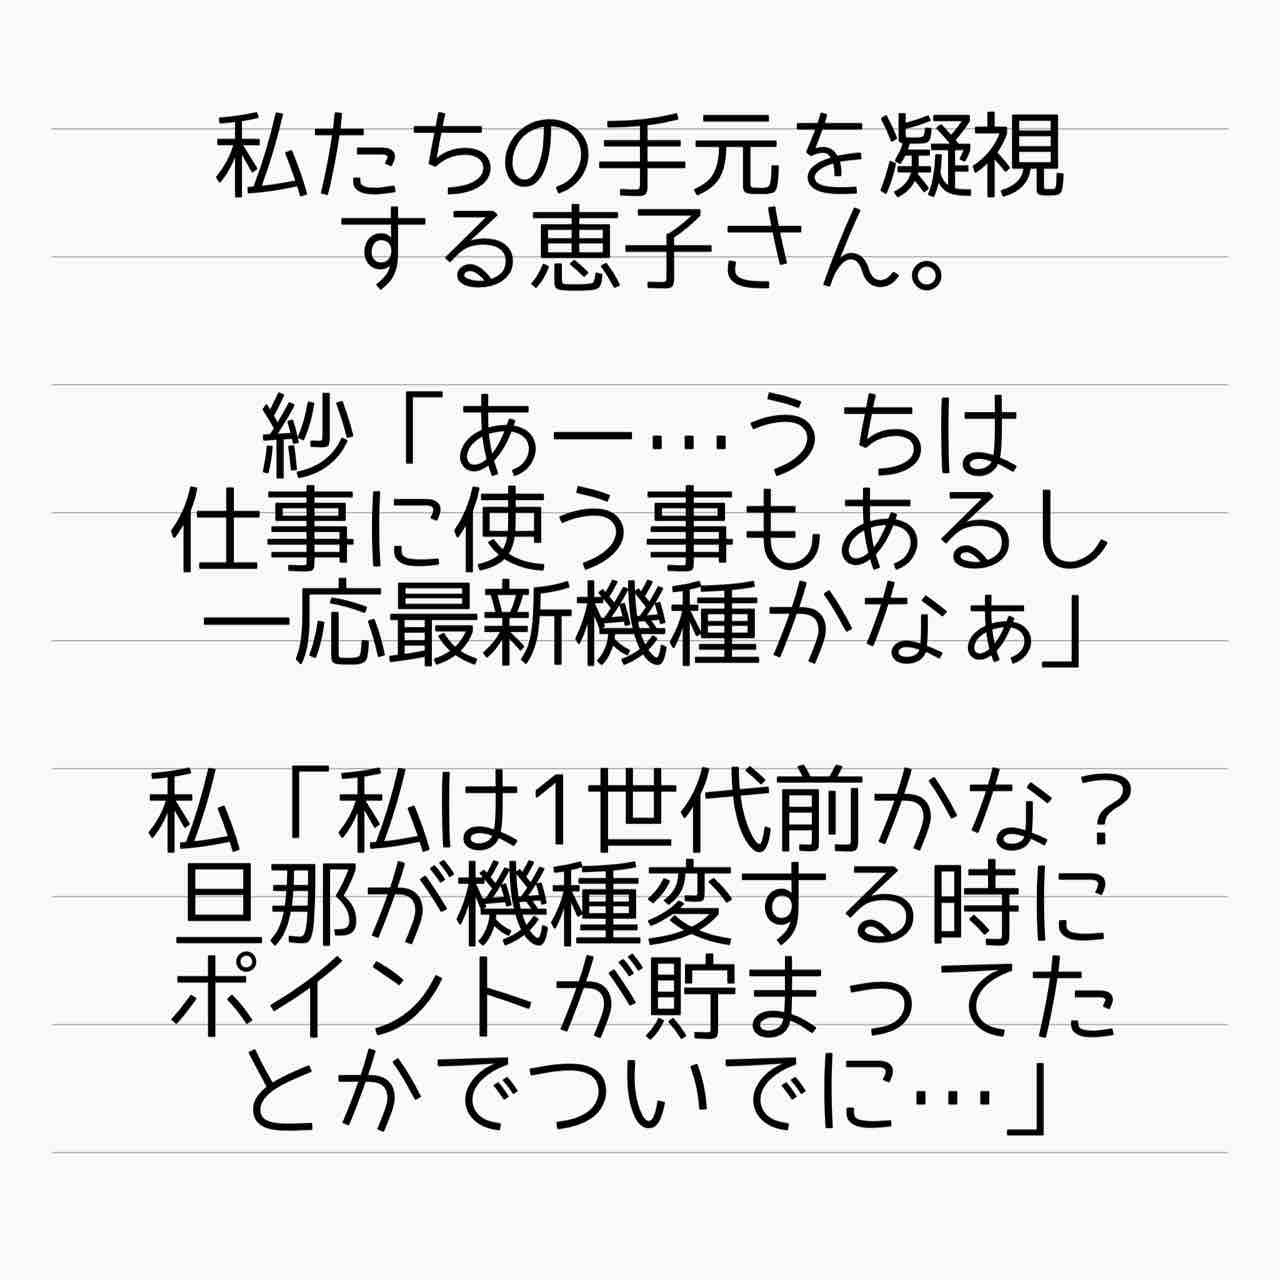 私たちの手元を凝視
する恵子さん。
紗「あー…うちは
仕事に使う事もあるし
一応最新機種かなぁ」
私「私は1世代前かな？
旦那が機種変する時に
ポイントが貯まってた
とかでついでに…」